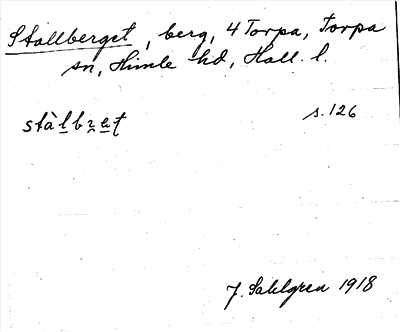 Stallberget, berg, 4 Torpa, Torpa
sn, Himle hd, Hall. l.
stàlbrett s.126
J. Sahlgren 1918